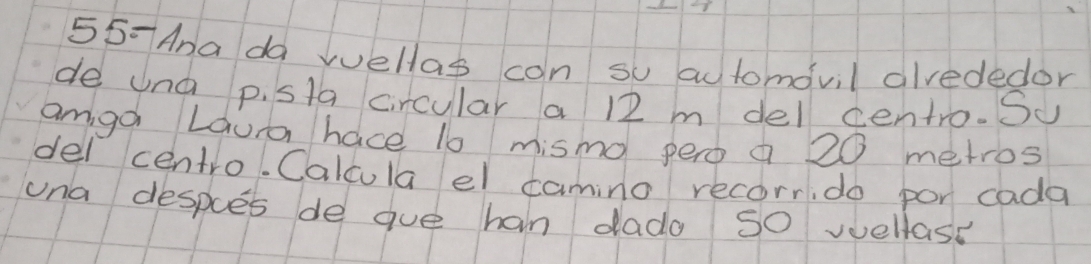 55.- Ana da vueltas con su automóvil alrededor
de una pista circular a 12 m del centro. Su
amiga Laura hace lo mismo pero a 20 metros
del centro. Calcula el camino recorrido por cada
una después de que han dado 50 vueltas.